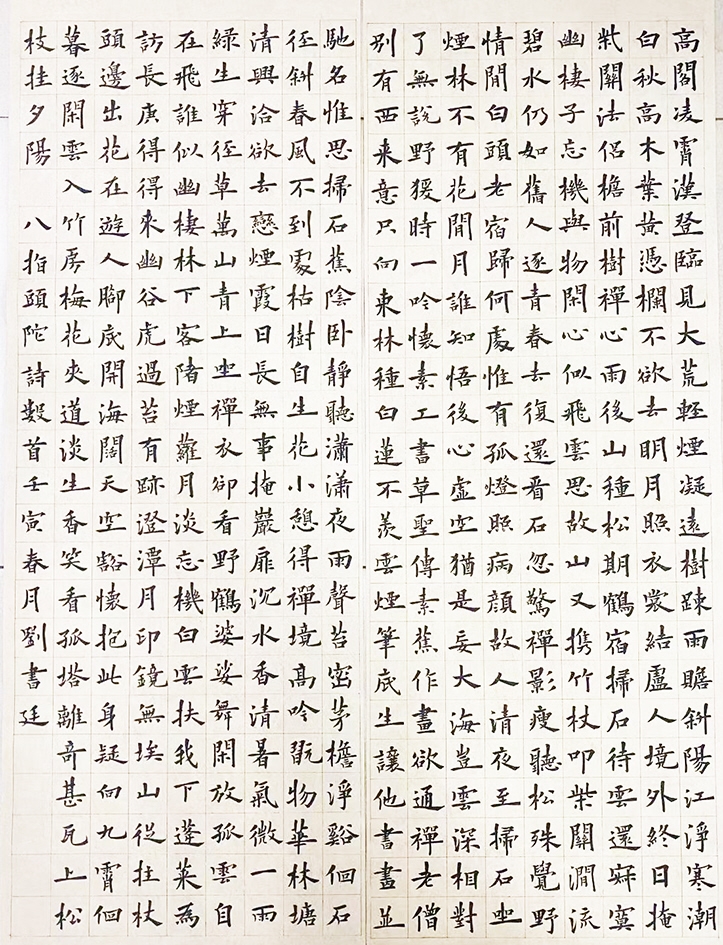 高閣凌霄漢登臨見大荒輕煙凝遠樹踈雨瞻斜陽江淨寒潮
白秋高木葉黃憑欄不欲去明月照衣裳結盧人境外終日掩
柴關法侶檐前樹禪心雨後山種松期鶴宿掃石待雲還寂寞
幽棲子忘機與物閑心似飛雲思故山又携竹杖叩柴關澗流
碧水仍如舊人逐青春去復還看石忽驚禪影瘦聽松殊覺野
情閒白頭老宿歸何處惟有孤燈照病顏故人清夜至掃石坐
煙林不有花間月誰知悟後心虛空猶是妄大海豈雲深相對
了無說野猨時一吟懷素工書草聖傳素蕉作畫欲通禪老僧
別有西來意只向東林種白蓮不羨雲煙筆底生讓他書畫並
馳名惟思掃石蕉陰卧靜聽瀟瀟夜雨聲苔密茅檐淨谿佪石
徑斜春風不到處枯樹自生花小憩得禪境高吟翫物華林塘
清興洽欲去戀煙霞日長無事掩巖扉沉水香清暑氣微一雨
綠生穿徑草萬山青上坐禪衣卻看野鶴婆娑舞閑放孤雲自
在飛誰似幽棲林下客陼煙蘿月淡忘機白雲扶我下蓬萊為
訪長庚得得來幽谷虎過苔有跡澄潭月印鏡無埃山從拄杖
頭邊出花在遊人腳底開海闊天空豁懷抱此身疑向九霄佪
暮逐閑雲入竹房梅花夾道淡生香笑看孤塔離奇甚瓦上松
枝挂夕陽 八指頭陀詩數首壬寅春月劉書廷